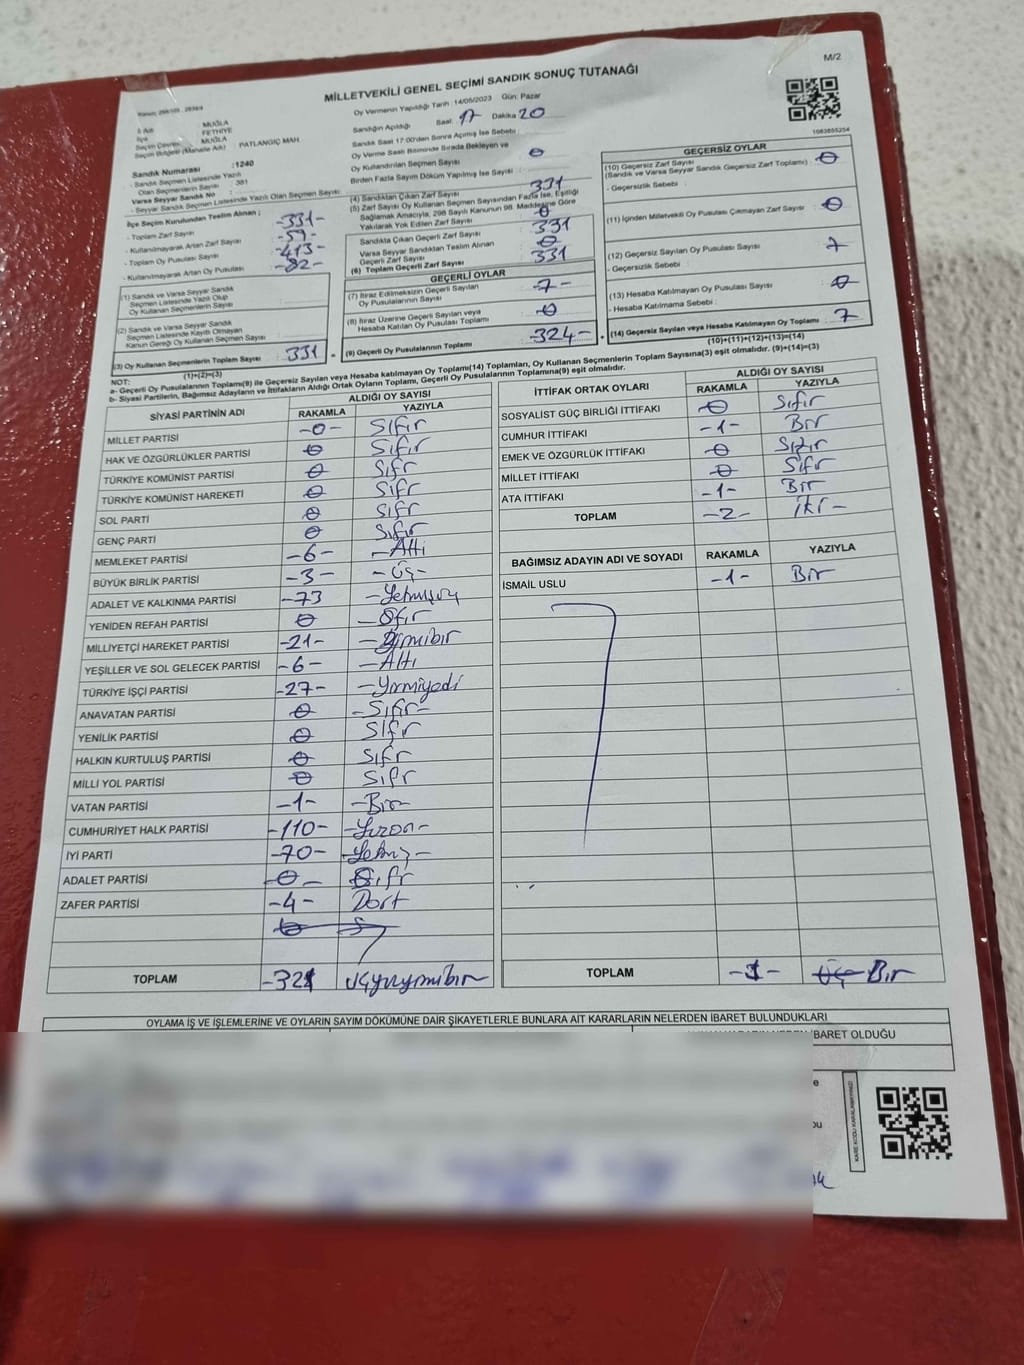 M/2
MİLLETVEKİLİ GENEL SEÇİMİ SANDIK SONUÇ TUTANAĞI
Oy Vermenin Yapıldığı Tarih : 14/05/2023 Gün: Pazar
1083855254
İl Adı : MUĞLA
İlçe : FETHİYE
Seçim Çevresi : MUĞLA
Seçim Bölgesi (Mahalle Adı) : PATLANGIÇ MAH
Sandığın Açıldığı Saat: 17 Dakika 20
Sandık Saat 17:00'den Sonra Açılmış İse Sebebi :
Oy Verme Saati Bitiminde Sırada Bekleyen ve
Oy Kullandırılan Seçmen Sayısı 0
Birden Fazla Sayım Döküm Yapılmış İse Sayısı :
Sandık Numarası :1240
- Sandık Seçmen Listesinde Yazılı
Olan Seçmenlerin Sayısı : 381
Varsa Seyyar Sandık No :
- Seyyar Sandık Seçmen Listesinde Yazılı Olan Seçmen Sayısı :
İlçe Seçim Kurulundan Teslim Alınan ;
- Toplam Zarf Sayısı -331-
- Kullanılmayarak Artan Zarf Sayısı
- Toplam Oy Pusulası Sayısı -413-
- Kullanılmayarak Artan Oy Pusulası -82-
(1) Sandık ve Varsa Seyyar Sandık
Seçmen Listesinde Yazılı Olup
Oy Kullanan Seçmenlerin Sayısı
(2) Sandık ve Varsa Seyyar Sandık
Seçmen Listesinde Kayıtlı Olmayan
Kanun Gereği Oy Kullanan Seçmen Sayısı
(3) Oy Kullanan Seçmenlerin Toplam Sayısı : 331
(1)+(2)=(3)
(4) Sandıktan Çıkan Zarf Sayısı 331
(5) Zarf Sayısı Oy Kullanan Seçmen Sayısından Fazla İse, Eşitliği
Sağlamak Amacıyla, 298 Sayılı Kanunun 98. Maddesine Göre
Yakılarak Yok Edilen Zarf Sayısı 0
Sandıkta Çıkan Geçerli Zarf Sayısı 331
Varsa Seyyar Sandıktan Teslim Alınan
Geçerli Zarf Sayısı 0
(6) Toplam Geçerli Zarf Sayısı 331
GEÇERLİ OYLAR
(7) İtiraz Edilmeksizin Geçerli Sayılan
Oy Pusulalarının Sayısı -7-
(8) İtiraz Üzerine Geçerli Sayılan veya
Hesaba Katılan Oy Pusulası Toplamı 0
(9) Geçerli Oy Pusulalarının Toplamı -324-
GEÇERSİZ OYLAR
(10) Geçersiz Zarf Sayısı
(Sandık ve Varsa Seyyar Sandık Geçersiz Zarf Toplamı) : 0
- Geçersizlik Sebebi :
(11) İçinden Milletvekili Oy Pusulası Çıkmayan Zarf Sayısı : 0
(12) Geçersiz Sayılan Oy Pusulası Sayısı : 7
- Geçersizlik Sebebi :
(13) Hesaba Katılmayan Oy Pusulası Sayısı : 0
- Hesaba Katılmama Sebebi :
(14) Geçersiz Sayılan veya Hesaba Katılmayan Oy Toplamı : 7
(10)+(11)+(12)+(13)=(14)
NOT:
a- Geçerli Oy Pusulalarının Toplamı(9) ile Geçersiz Sayılan veya Hesaba Katılmayan Oy Toplamı(14) Toplamları, Oy Kullanan Seçmenlerin Toplam Sayısına(3) eşit olmalıdır. (9)+(14)=(3)
b- Siyasi Partilerin, Bağımsız Adayların ve İttifakların Aldığı Ortak Oyların Toplamı, Geçerli Oy Pusulalarının Toplamına(9) eşit olmalıdır.
SİYASİ PARTİNİN ADI ALDIĞI OY SAYISI
RAKAMLA YAZIYLA
MİLLET PARTİSİ -0- Sıfır
HAK VE ÖZGÜRLÜKLER PARTİSİ 0 Sıfır
TÜRKİYE KOMÜNİST PARTİSİ 0 Sıfr
TÜRKİYE KOMÜNİST HAREKETİ 0 Sıfr
SOL PARTİ 0 Sıfr
GENÇ PARTİ 0 Sıfır
MEMLEKET PARTİSİ -6- -Altı
BÜYÜK BİRLİK PARTİSİ -3- -Üç-
ADALET VE KALKINMA PARTİSİ -73 -Yetmişüç
YENİDEN REFAH PARTİSİ 0 -Sıfır
MİLLİYETÇİ HAREKET PARTİSİ -21- -Yirmibir
YEŞİLLER VE SOL GELECEK PARTİSİ -6- -Altı
TÜRKİYE İŞÇİ PARTİSİ -27- -Yirmiyedi
ANAVATAN PARTİSİ 0 -Sıfır-
YENİLİK PARTİSİ 0 Sıfr
HALKIN KURTULUŞ PARTİSİ 0 Sıfr
MİLLİ YOL PARTİSİ 0 Sıfr
VATAN PARTİSİ -1- -Bir-
CUMHURİYET HALK PARTİSİ -110- -Yüzon-
İYİ PARTİ -70- -Yetmiş-
ADALET PARTİSİ -0- Sıfr
ZAFER PARTİSİ -4- Dört
TOPLAM -321 Üçyüzyirmibir
İTTİFAK ORTAK OYLARI ALDIĞI OY SAYISI
RAKAMLA YAZIYLA
SOSYALİST GÜÇ BİRLİĞİ İTTİFAKI 0 Sıfır
CUMHUR İTTİFAKI -1- Bir
EMEK VE ÖZGÜRLÜK İTTİFAKI 0 Sıfır
MİLLET İTTİFAKI 0 Sıfr
ATA İTTİFAKI -1- Bir
TOPLAM -2- İki-
BAĞIMSIZ ADAYIN ADI VE SOYADI RAKAMLA YAZIYLA
İSMAİL USLU -1- Bir
TOPLAM -1- Üç Bir
OYLAMA İŞ VE İŞLEMLERİNE VE OYLARIN SAYIM DÖKÜMÜNE DAİR ŞİKAYETLERLE BUNLARA AİT KARARLARIN NELERDEN İBARET BULUNDUKLARI
İBARET OLDUĞU
KARE KODU KARALAMAYINIZ!